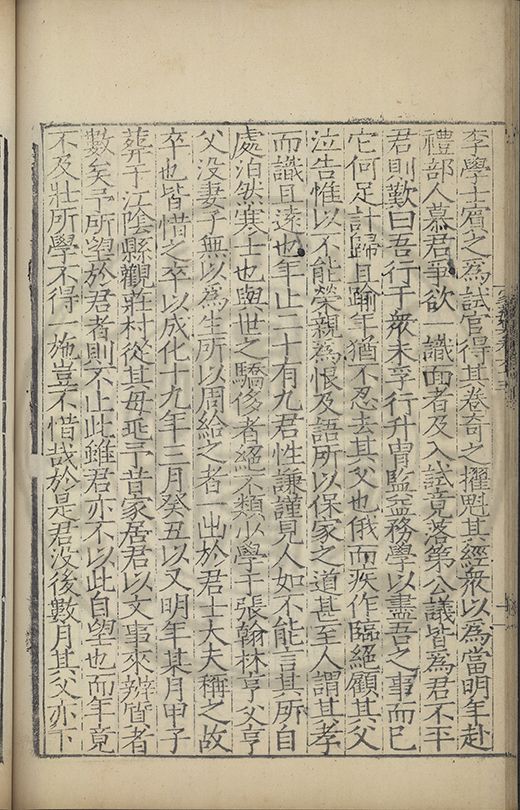 李學士賓之爲試官得其卷奇之擢魁其經衆以爲當明年赴
禮部人慕君爭欲一識面者及入試竟落第公議皆爲君不平
君則歎曰吾行于衆未孚行升冑監益務學以盡吾之事而已
它何足計歸且踰年猶不忍去其父也俄而疾作臨絕顧其父
泣告惟以不能榮親爲恨及語所以保家之道甚至人謂其孝
而識且遠也年止二十有九君性謙謹見人如不能言其所自
處泊然寒士也與世之驕侈者絕不類少學于張翰林亨父亨
父沒妻子無以爲生所以周給之者一出於君士大夫稱之故
卒也皆惜之卒以成化十九年三月癸丑以又明年某月甲子
葬于江陰縣觀莊村從其母兆予昔家居君以文事來辨質者
數矣予所望於君者則不止此雖君亦不以此自望也而年竟
不及壯所學不得一施豈不惜哉於是君沒後數月其父亦下